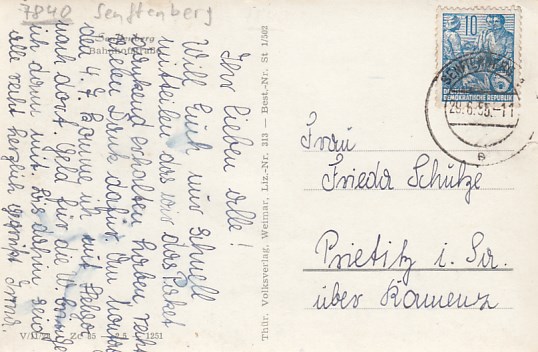 7840 Senftenberg
Senftenberg
Bahnhofstraße
Ihr lieben alle!
Will Euch nur schnell
mitteilen das wir das Paket
dankend erhalten haben, recht
vielen Dank dafür. Den
den 4.7. komme ich mit
nach dort. Geld für die
ich dann mit. Bis dahin seid
alle recht herzlich gegrüßt Erna.
V/11/28 1251
Thür. Volksverlag, Weimar, Liz.-Nr. 313 — Best.-Nr. St 1/502
10
DEUTSCHE DEMOKRATISCHE REPUBLIK
SENFTENBERG
29.6.55.-11
Frau
Frieda Schütze
Prietitz i. Sa.
über Kamenz